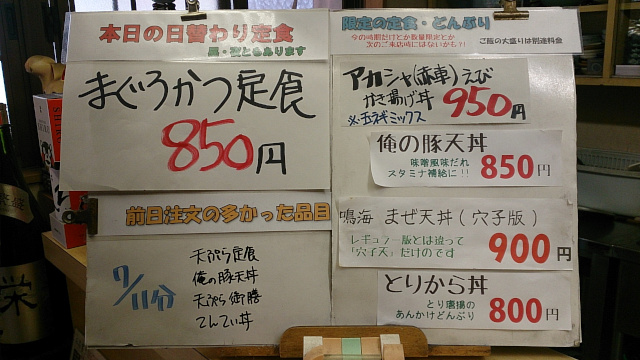 本日の日替わり定食
昼・夜ともあります
まぐろかつ定食
850円
前日注文の多かった品目
7/11分
天ぷら定食
俺の豚天丼
天ぷら御膳
てんてい丼
限定の定食・どんぶり
今の時期だけとか数量限定とか
次のご来店時にはないかも?!
ご飯の大盛りは別途料金
アカシャ(赤車)えび
かき揚げ丼 950円
※玉ネギミックス
俺の豚天丼
味噌風味だれ
スタミナ補給に!! 850円
鳴海 まぜ天丼(穴子版)
レギュラー版とは違って
「穴子天」だけのです 900円
とりから丼
とり唐揚の
あんかけどんぶり 800円
栄